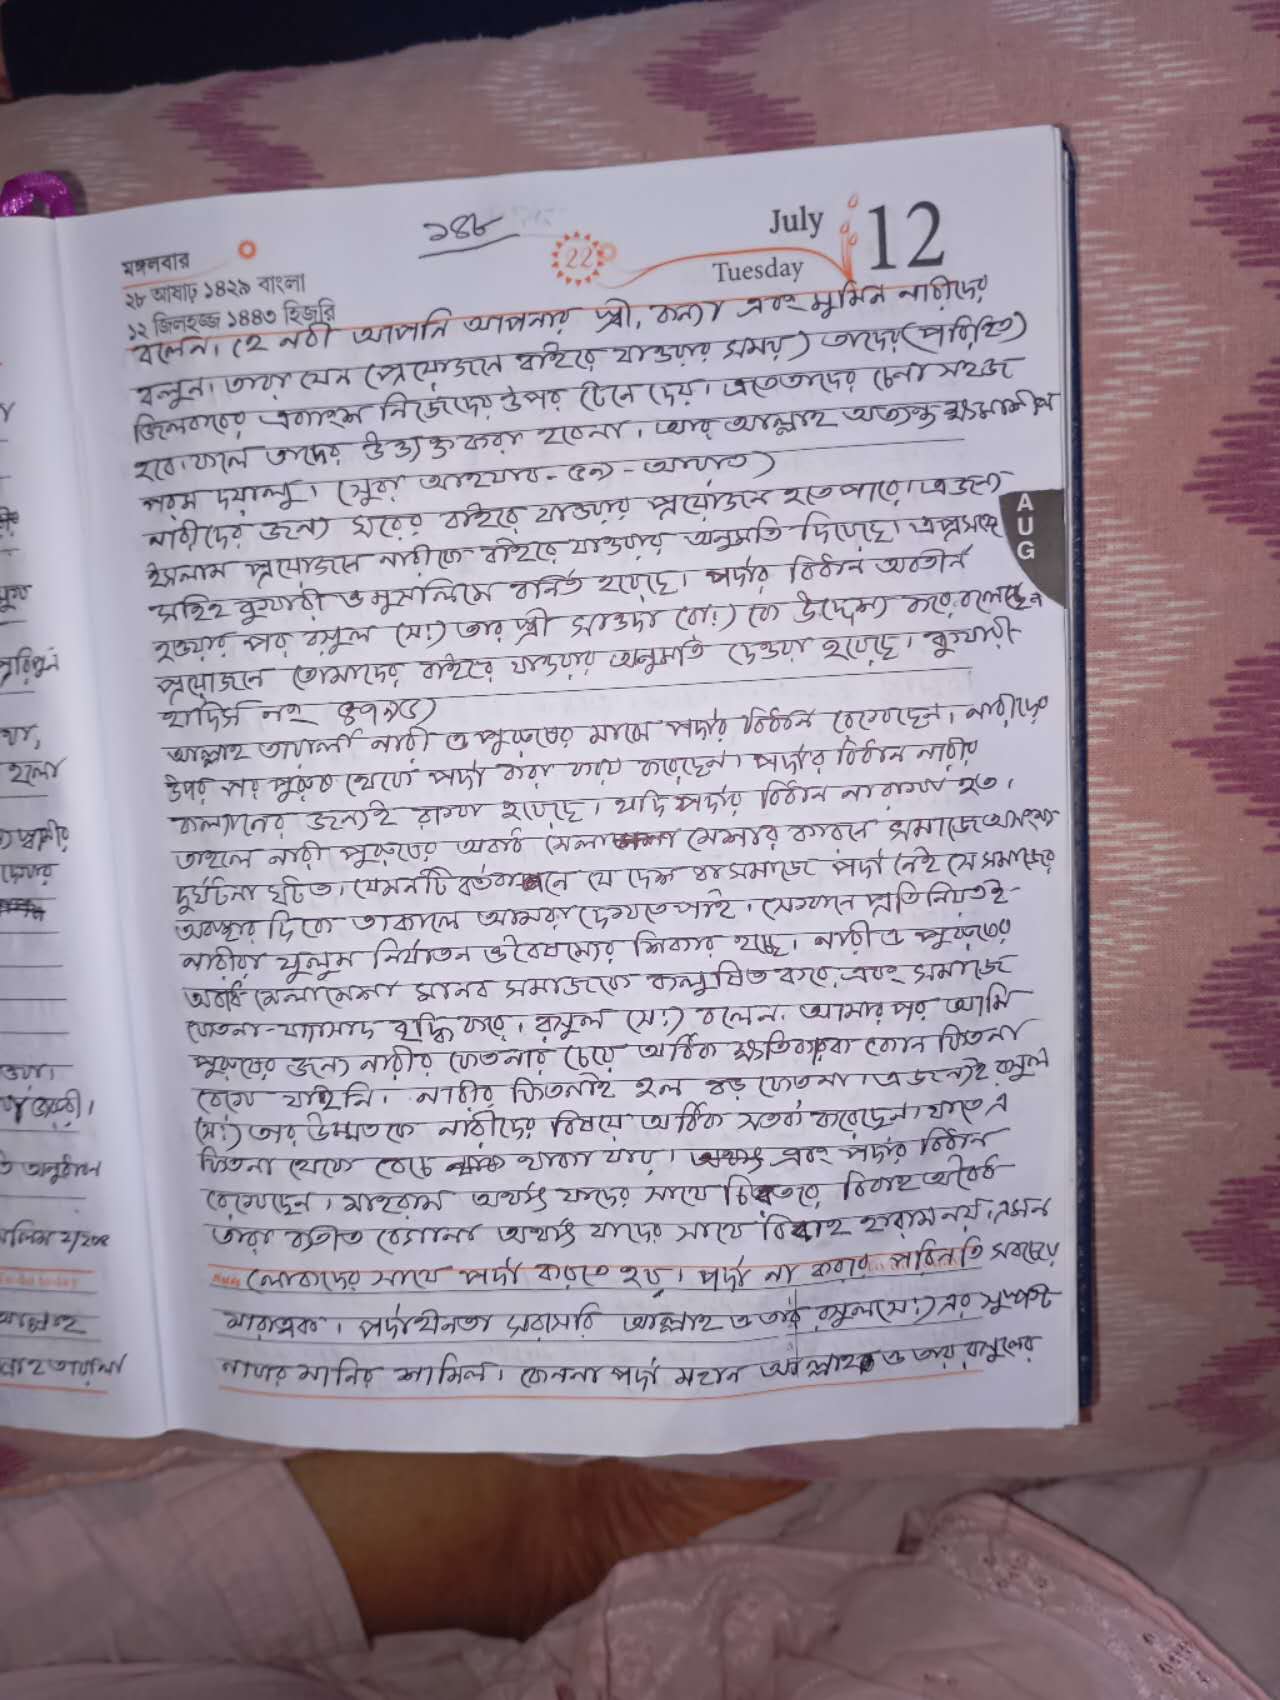 ১৪৮
July 12
মঙ্গলবার
22
Tuesday
২৮ আষাঢ় ১৪২৯ বাংলা
১২ জিলহজ্জ ১৪৪৩ হিজরি
বলেন। হে নবী আপনি আপনার স্ত্রী, কন্যা এবং মুমিন নারীদের
বলুন। তারা যেন (প্রয়োজনে বাইরে যাওয়ার সময়) তাদের (পরিহিত)
জিলবাবের একাংশ নিজেদের উপর টেনে দেয়। এতে তাদের চেনা সহজ
হবে। ফলে তাদের উত্যক্ত করা হবেনা। আর আল্লাহ অত্যন্ত ক্ষমাশীল
পরম দয়ালু। (সুরা আহযাব - ৫৯ - আয়াত)
নারীদের জন্য ঘরের বাইরে যাওয়ার প্রয়োজন হতে পারে। এজন্যে
ইসলাম প্রয়োজনে নারীকে বাইরে যাওয়ার অনুমতি দিয়েছে। এপ্রসঙ্গে
সহিহ বুখারী ও মুসলিমে বর্নিত হয়েছে। পর্দার বিধান অবতীর্ন
হওয়ার পর রসুল (সঃ) তার স্ত্রী সাওদা (রাঃ) কে উদ্দেশ্য করে বলেছেন
প্রয়োজনে তোমাদের বাইরে যাওয়ার অনুমতি দেওয়া হয়েছে। বুখারী
হাদিস নং ৪৭৯৫)
আল্লাহ তায়ালা নারী ও পুরুষের মাঝে পর্দার বিধান রেখেছেন। নারীদের
উপর পর পুরুষ থেকে পর্দা করা ফরয করেছেন। পর্দার বিধান নারীর
কল্যানের জন্যই রাখা হয়েছে। যদি পর্দার বিধান না রাখা হত।
তাহলে নারী পুরুষের অবাধ মেলা মেশার কারনে সমাজে অসংখ্য
দুর্ঘটনা ঘটত। যেমনটি বর্তমানে যে দেশ বা সমাজে পর্দা নেই সে সমাজের
অবস্থার দিকে তাকালে আমরা দেখতে পাই। সেখানে প্রতিনিয়তই
নারীরা যুলুম নির্যাতন ও বৈষম্যের শিকার হচ্ছে। নারী ও পুরুষের
অবাধ মেলামেশা মানব সমাজকে কলুষিত করে, এবং সমাজে
ফেতনা-ফাসাদ বৃদ্ধি করে। রসুল (সঃ) বলেন, আমার পর আমি
পুরুষের জন্য নারীর ফেতনার চেয়ে অধিক ক্ষতিকারক কোন ফিতনা
রেখে যাইনি। নারীর ফিতনাই হল বড় ফেতনা। এজন্যই রসুল
(সঃ) তার উম্মতকে নারীদের বিষয়ে অধিক সতর্ক করেছেন। যাতে এ
ফিতনা থেকে বেচে থাকা যায়। এবং পর্দার বিধান
রেখেছেন। মাহরাম অর্থাৎ যাদের সাথে চিরতরে বিবাহ অবৈধ
তারা ব্যতীত বেগানা অর্থাৎ যাদের সাথে বিবাহ হারাম নয়। এমন
লোকদের সাথে পর্দা করতে হয়। পর্দা না করার পরিনতি সবচেয়ে
মারাত্মক। পর্দাহীনতা সরাসরি আল্লাহ ও তার রসুল (সঃ) এর সুস্পষ্ট
নাফরমানির শামিল। কেননা পর্দা মহান আল্লাহ ও তার রসুলের
A
U
G
হলো
আল্লাহ